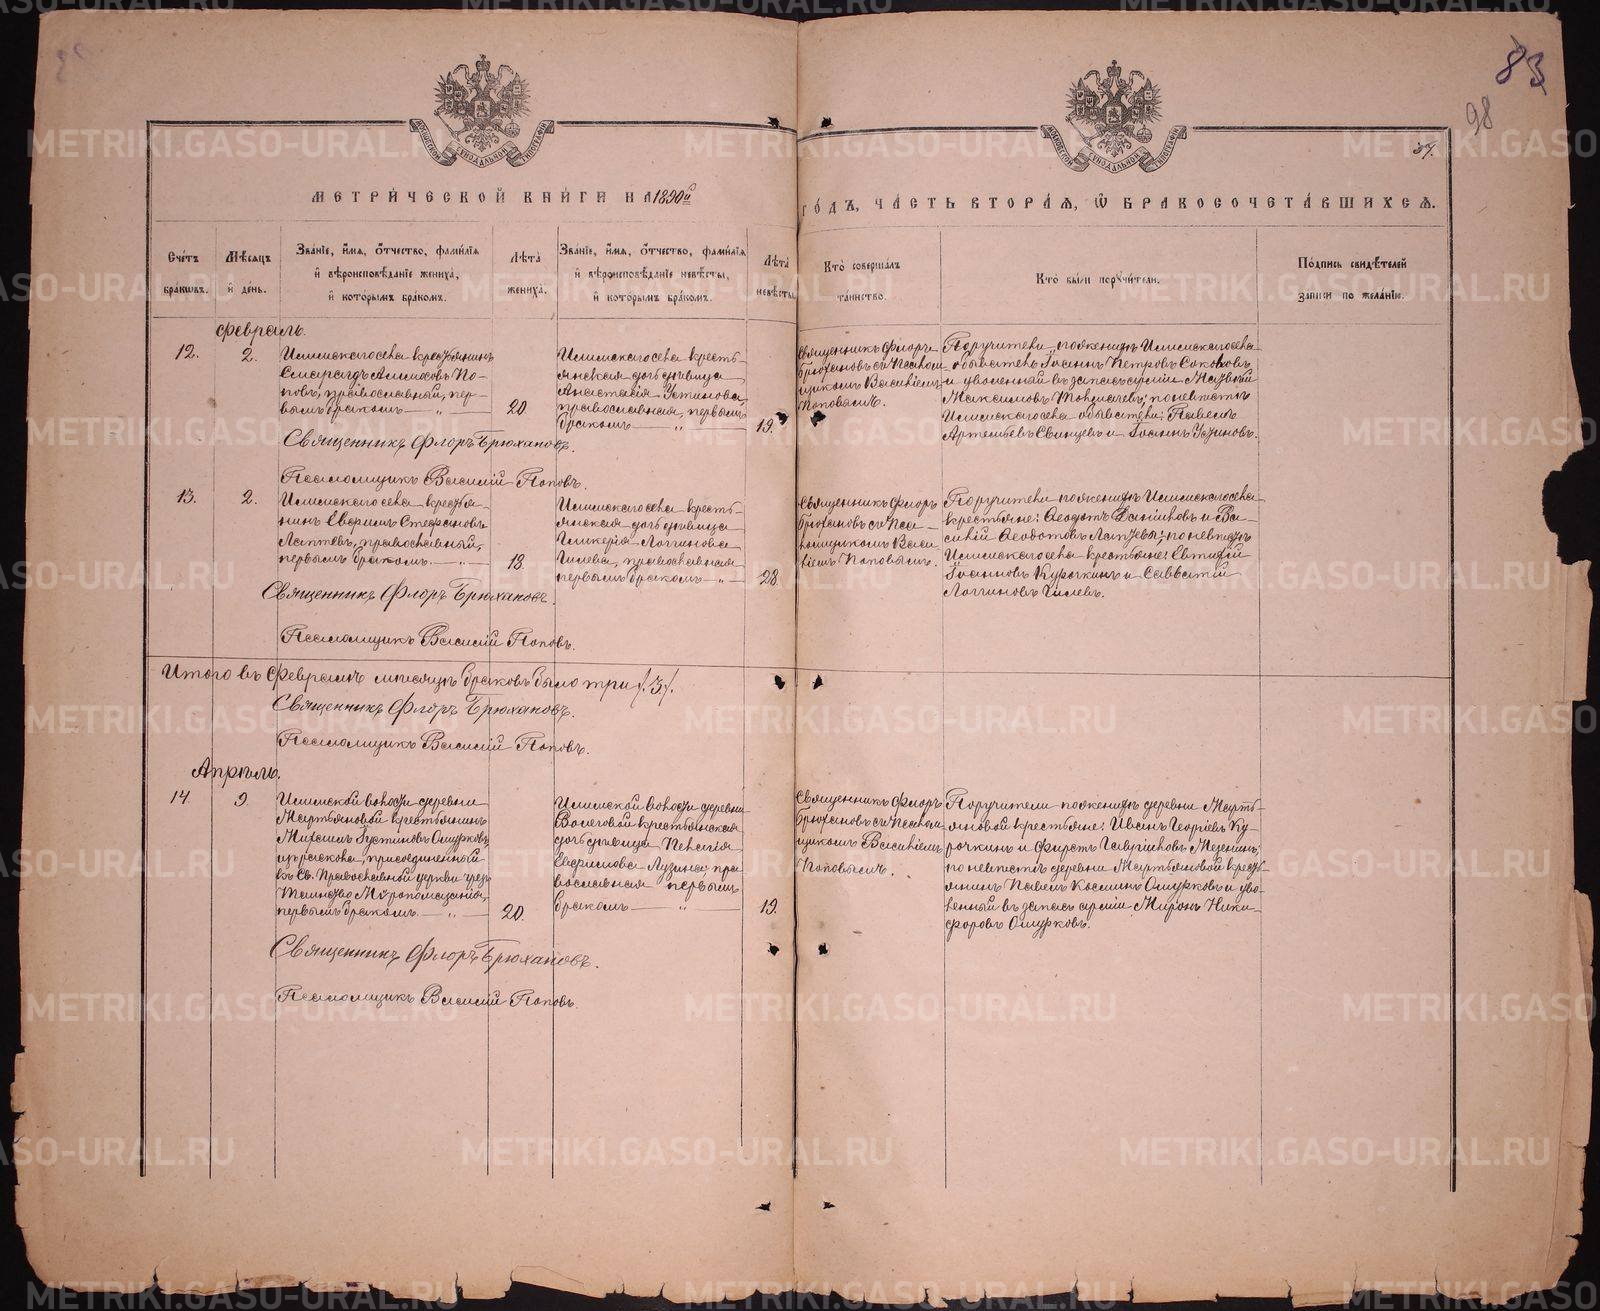 83
98
37.
МОСКОВСКОЙ СѴНОДАЛЬНОЙ ТИПОГРАФІИ
МОСКОВСКОЙ СѴНОДАЛЬНОЙ ТИПОГРАФІИ
МЕТРИ́ЧЕСКОЙ КНИ́ГИ НА 1890й
ГО́ДЪ, ЧА́СТЬ ВТОРА́Я, Ѡ БРАКОСОЧЕТА́ВШИХСЯ.
Сче́тъ
бра́кωвъ.
Мѣ́сяцъ
и де́нь.
Зва́нїе, и́мя, ѻ́тчество, фами́лїя
и вѣроисповѣ́данїе жениха̀,
и кото́рымъ бра́комъ.
Лѣ́та
жениха̀.
Зва́нїе, и́мя, ѻ́тчество, фами́лїя
и вѣроисповѣ́данїе невѣ́сты,
и кото́рымъ бра́комъ.
Лѣ́та
невѣ́сты
Кто̀ соверша́лъ
та́инство.
Кто̀ бы́ли порꙋчи́тели.
По́дпись свидѣ́телей
за́писи по жела́нїю.
Февраль.
12.
2.
Илимскаго села крестьянинъ
Смарагдъ Алимповъ По-
повъ, православный, пер-
вымъ бракомъ — „ —
20.
Илимскаго села кресть-
янская дочь девица
Анастасія Устинова,
православная, первымъ
бракомъ — „ —
19.
Священникъ Флоръ
Брюхановъ съ Псалом-
щикомъ Василіемъ
Поповымъ.
Поручители по женихѣ Илимскаго села
обыватель Іоаннъ Петровъ Соковъ
и уволенный въ запасъ арміи Матвѣй
Максимовъ ; по невѣстѣ
Илимскаго села обыватели: Павелъ
Артемьевъ Свинцевъ и Іоаннъ Устиновъ.
Священникъ Флоръ Брюхановъ.
Псаломщикъ Василій Поповъ.
13.
2.
Илимскаго села крестья-
нинъ Ефремъ Стефановъ
Лаптевъ, православный,
первымъ бракомъ. — „ —
18.
Илимскаго села кресть-
янская дочь девица
Гликерія Логгинова
православная
первымъ бракомъ — „ —
28.
Священникъ Флоръ
Брюхановъ съ Пса-
ломщикомъ Васи-
ліемъ Поповымъ.
Поручители по женихѣ Илимскаго села
крестьяне: Ѳеодотъ Даніиловъ и Ва-
силій Ѳеодотовъ Лаптевы; по невѣстѣ
Илимскаго села крестьяне: Евтихій
Іоанновъ Курочкинъ и Савватій
Логгиновъ
Священникъ Флоръ Брюхановъ.
Псаломщикъ Василій Поповъ.
Итого въ Февралѣ мѣсяцѣ браковъ было три /.3./.
Священникъ Флоръ Брюхановъ.
Псаломщикъ Василій Поповъ.
Апрѣль.
14.
9.
Илимской волости деревни
Мартьяновой крестьянинъ
Михаилъ Іустиновъ Ошурковъ
изъ раскола, присоединенный
къ Св. Православной церкви чрезъ
Таинство Мѵропомазанія,
первымъ бракомъ. — „ —
20.
Илимской волости деревни
Волеговой крестьянская
дочь девица Пелагія
Евфимова Лузина, пра-
вославная первымъ
бракомъ — „ —
19.
Священникъ Флоръ
Брюхановъ съ Псалом-
щикомъ Василіемъ
Поповымъ.
Поручители по женихѣ деревни Марть-
яновой крестьяне: Иванъ Георгіевъ Ку-
рочкинъ и Фирсъ Гавріиловъ
по невѣстѣ деревни Мартьяновой кресть-
янинъ Павелъ Косминъ Ошурковъ и уво-
ленный въ запасъ арміи Миронъ Ники-
форовъ Ошурковъ.
Священникъ Флоръ Брюхановъ.
Псаломщикъ Василій Поповъ.
METRIKI.GASO-URAL.RU